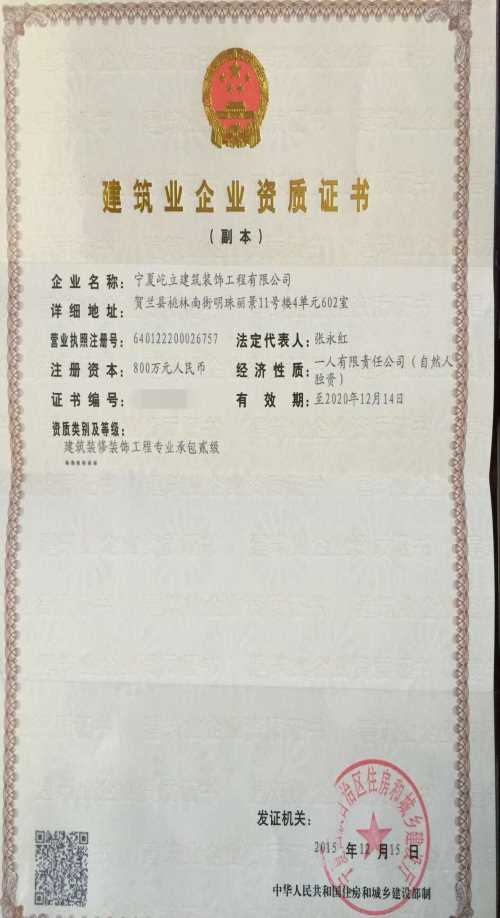 建筑业企业资质证书
（副本）
企业名称：宁夏屹立建筑装饰工程有限公司
详细地址：贺兰县桃林南街明珠丽景11号楼4单元602室
营业执照注册号：640122200026757 法定代表人：张永红
注册资本：800万元人民币 经济性质：一人有限责任公司（自然人
独资）
证书编号： 有效期：至2020年12月14日
资质类别及等级：
建筑装修装饰工程专业承包贰级
******
治区住房和城乡建设厅
发证机关：
2015年12月15日
中华人民共和国住房和城乡建设部制